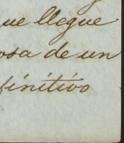 ue llegue
osa de un
finitivo